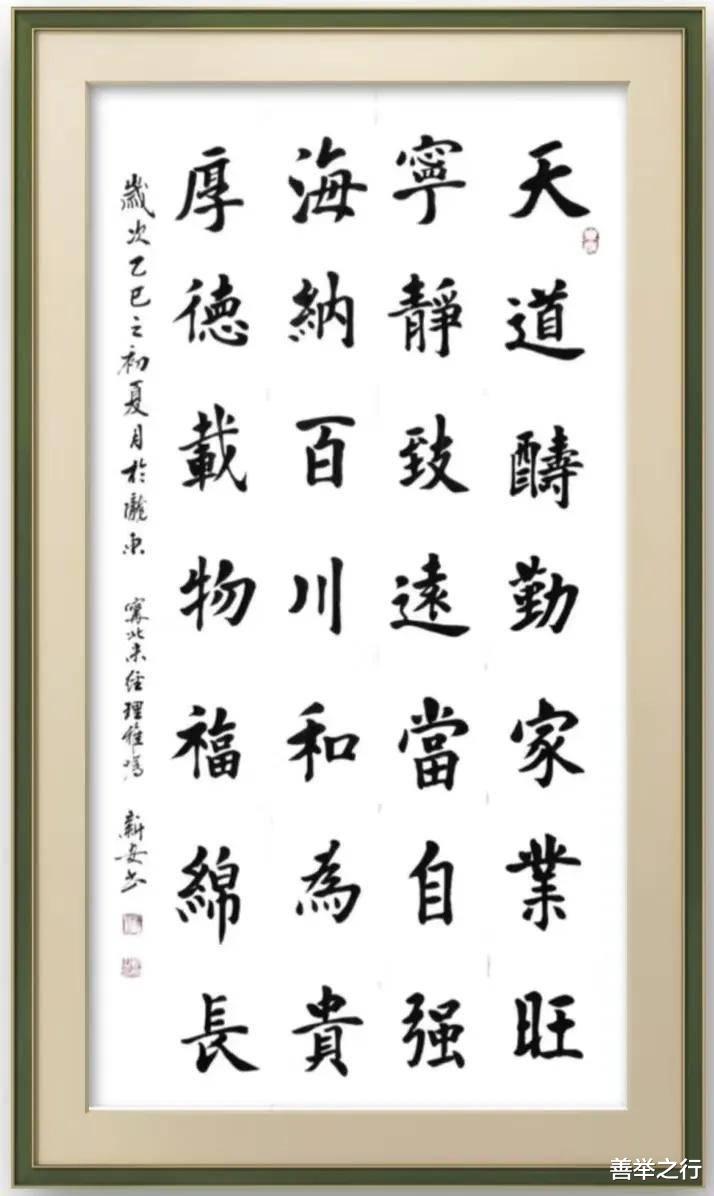 天道酬勤家業旺
寧靜致遠當自强
海納百川和為貴
厚德載物福綿長
歲次乙巳之初夏月於隴東 寫此来經理雅嘱 新安书
善举之行